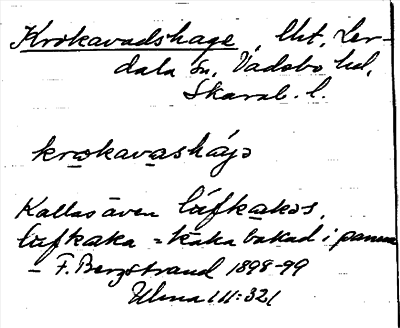 Krokavadshage, Uht. Ler-
dala sn, Vadsbo hd,
Skarab. l.
krokavashájə
Kallas även låfkakəs,
låfkaka = kaka bakad i panna
– F. Bergstrand 1898-99
Ulma 111:321